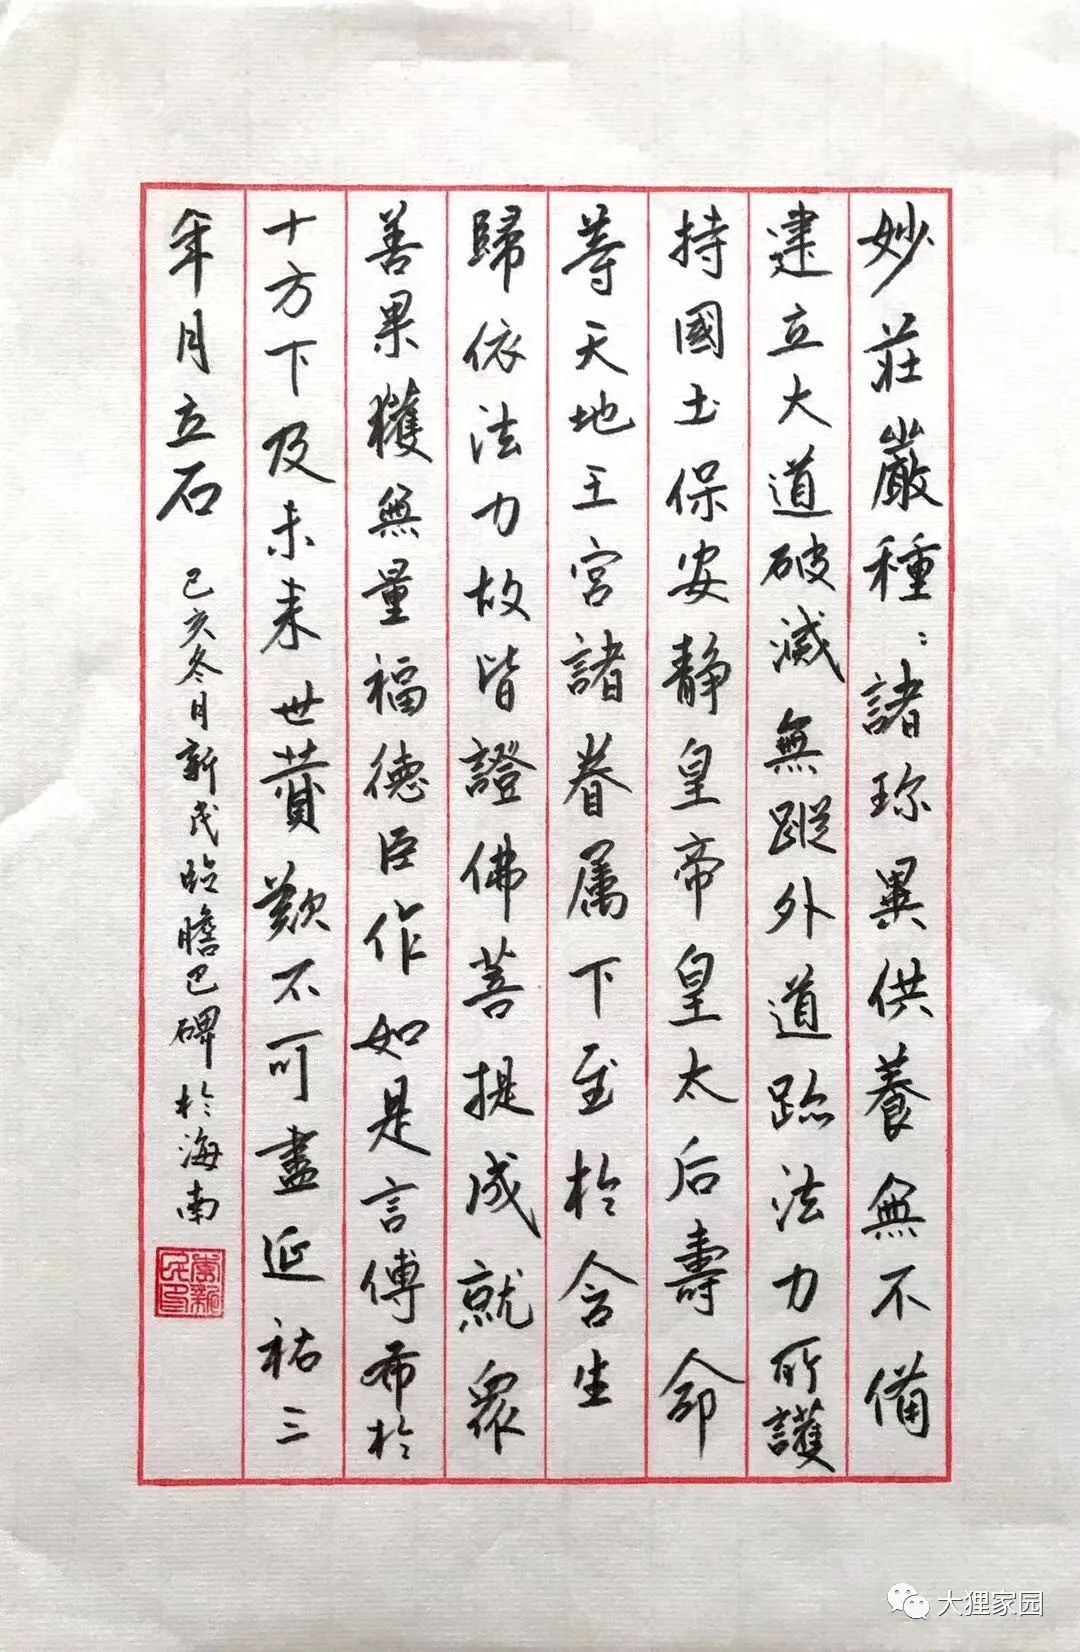 妙莊嚴種〻諸珎異供養無不備
建立大道破滅無蹤外道跡法力所護
持國土保安靜皇帝皇太后壽命
等天地王宮諸眷属下至於含生
歸依法力故皆證佛菩提成就衆
善果獲無量福德臣作如是言傳布於
十方下及未来世賛歎不可盡延祐三
年月立石 己亥冬月新民臨膽巴碑於海南
大狸家园